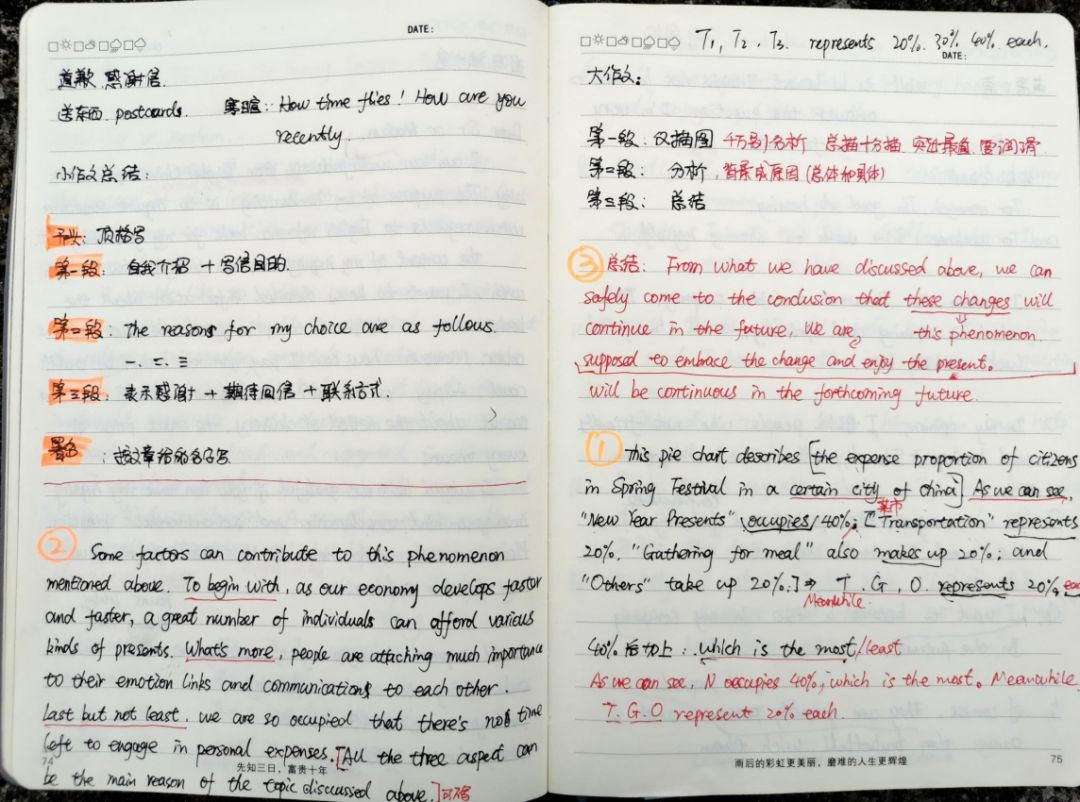 DATE:
道歉 感谢信
送东西 postcards. 寒暄: How time flies! How are you
recently.
小作文总结:
开头: 顶格写
第一段: 自我介绍 + 写信目的.
第二段: The reasons for my choice are as follows.
一、二、三
第三段: 表示感谢 + 期待回信 + 联系方式.
署名:
② Some factors can contribute to this phenomenon
mentioned above. To begin with, as our economy develops faster
and faster, a great number of individuals can afford various
kinds of presents. What's more, people are attaching much importance
to their emotion links and communications to each other.
Last but not least, we are so occupied that there's not time
left to engage in personal expenses. [All the three aspect can
be the main reason of the topic discussed above.] 可不写
74
先知三日，富贵十年
T1, T2, T3. represents 20%. 30% 40% each.
DATE:
大作文:
第一段: 仅描图 千万别分析 总描+分描
第二段: 分析, 背景或原因 (总体和具体)
第三段: 总结
③ 总结: From what we have discussed above, we can
safely come to the conclusion that these changes will
continue in the future, We are this phenomenon
supposed to embrace the change and enjoy the present.
will be continuous in the forthcoming future.
① This pie chart describes [the expense proportion of citizens
in Spring Festival in a certain city of China] As we can see,
某市
"New Year Presents" occupies 40%; ["Transportation" represents
20%, "Gathering for meal" also makes up 20%; and
"Others" take up 20%.] ⇒ T. G, O. represents 20% each
Meanwhile
40%后加上: which is the most/least
As we can see, N occupies 40%, which is the most. Meanwhile
T. G. O represent 20% each.
雨后的彩虹更美丽，磨难的人生更辉煌
75